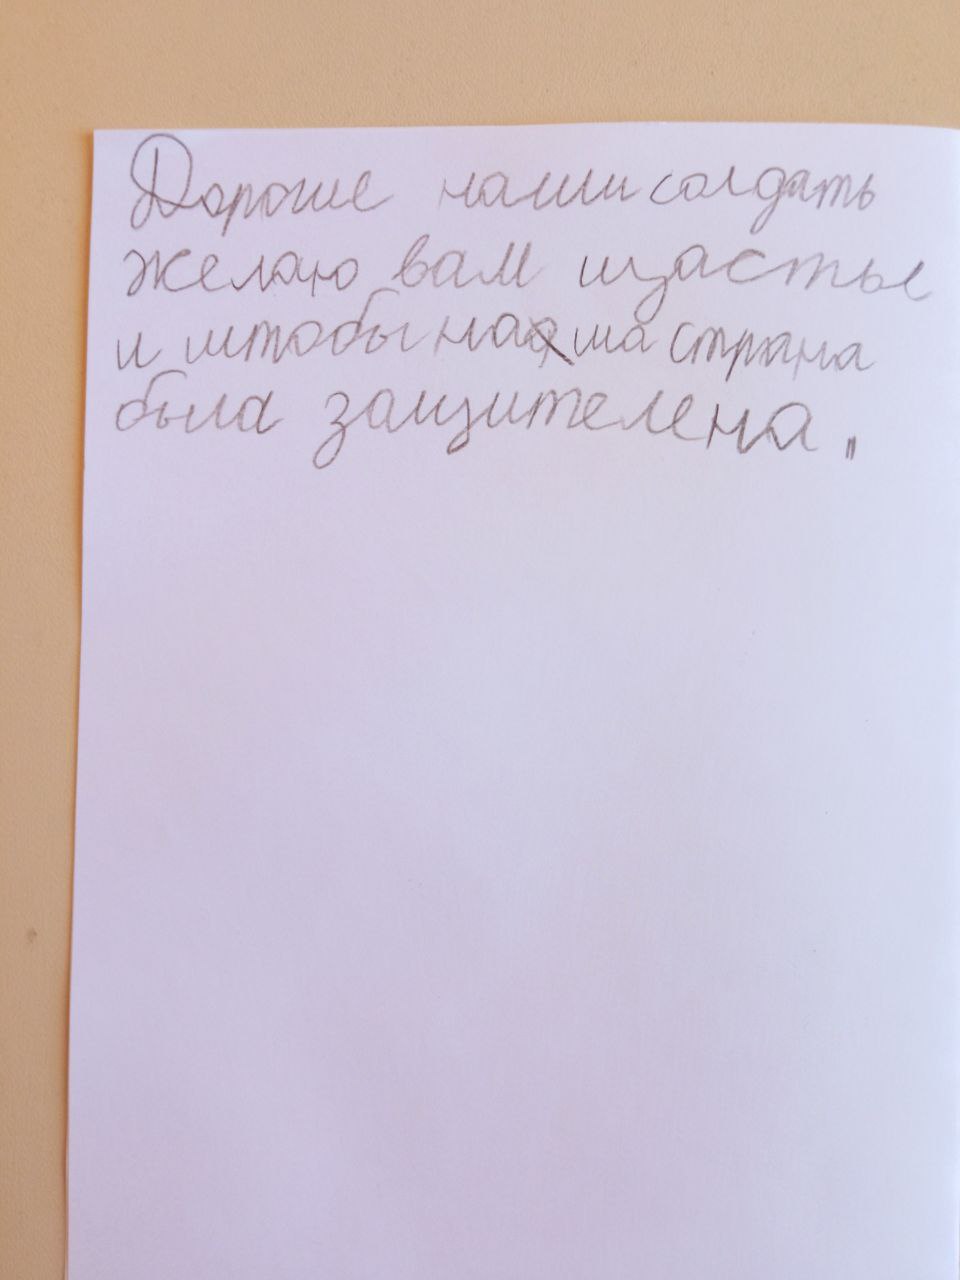 Дорогие наши солдать
желаю вам щастье
и штобы наша страна
была защителена.